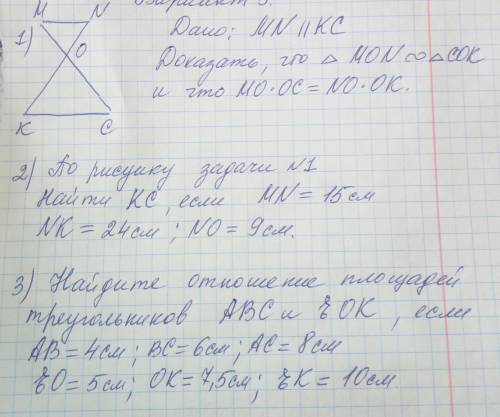 Вариант 3.
1)
M N
O
K C
Дано: MN || KC
Доказать, что △ MON ∾ △COK
и что MO·OC = NO·OK.
2) По рисунку задачи N1
Найти KC, если MN = 15см
NK = 24см ; NO = 9см.
3) Найдите отношение площадей
треугольников ABC и ZOK, если
AB = 4см; BC = 6см; AC = 8см
ZO = 5см; OK = 7,5см; ZK = 10см